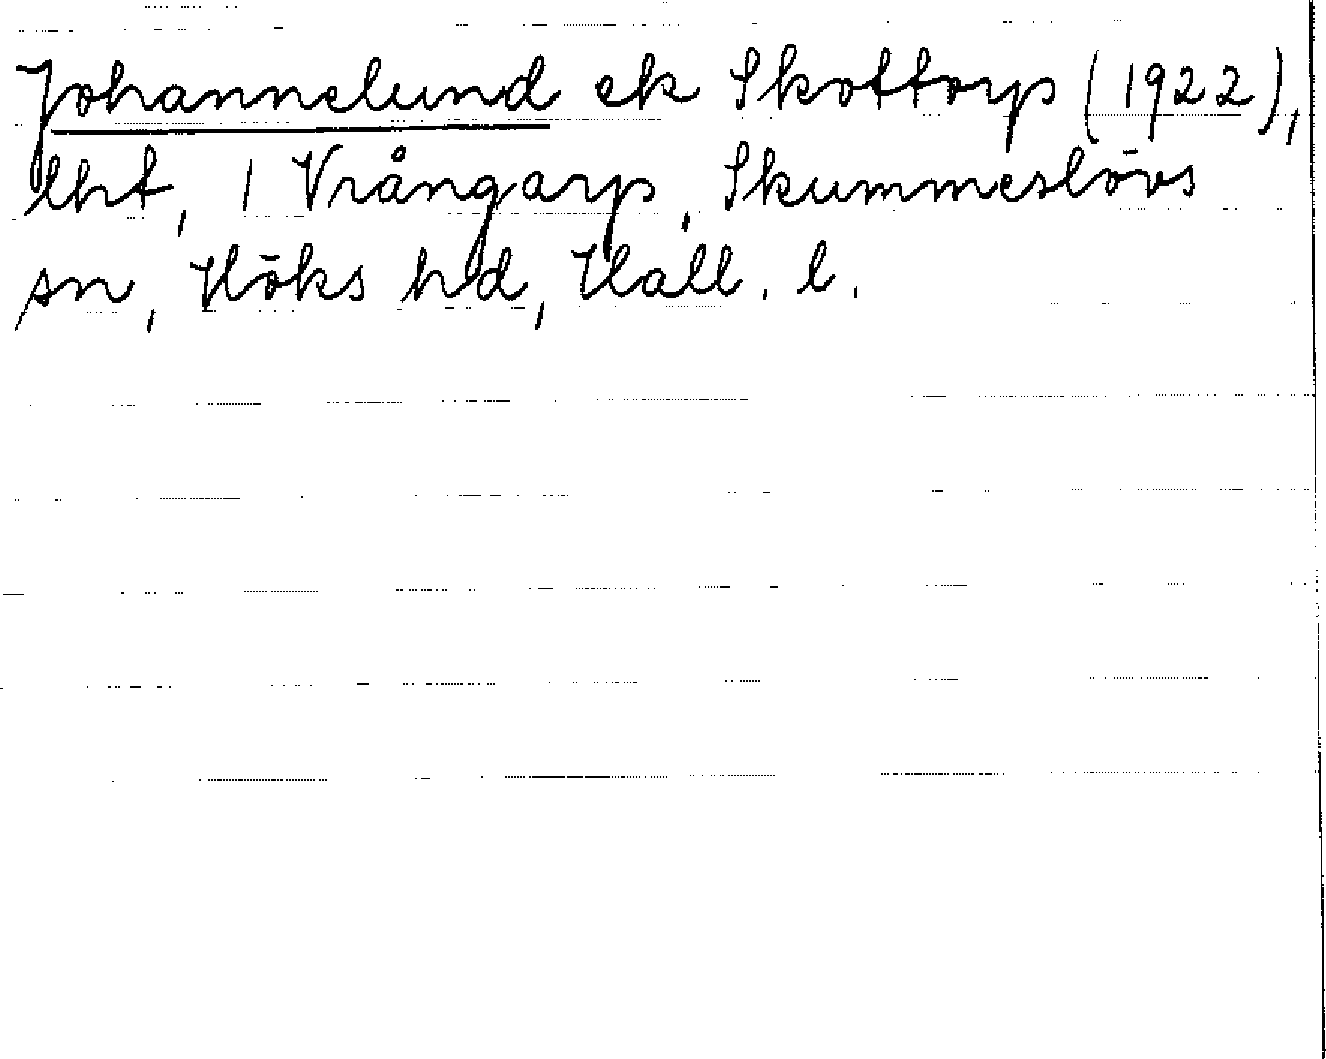 Johannelund ek Skottorp (1922),
lht, 1 Vrångarp, Skummeslövs
sn, Höks hd, Hall. l.